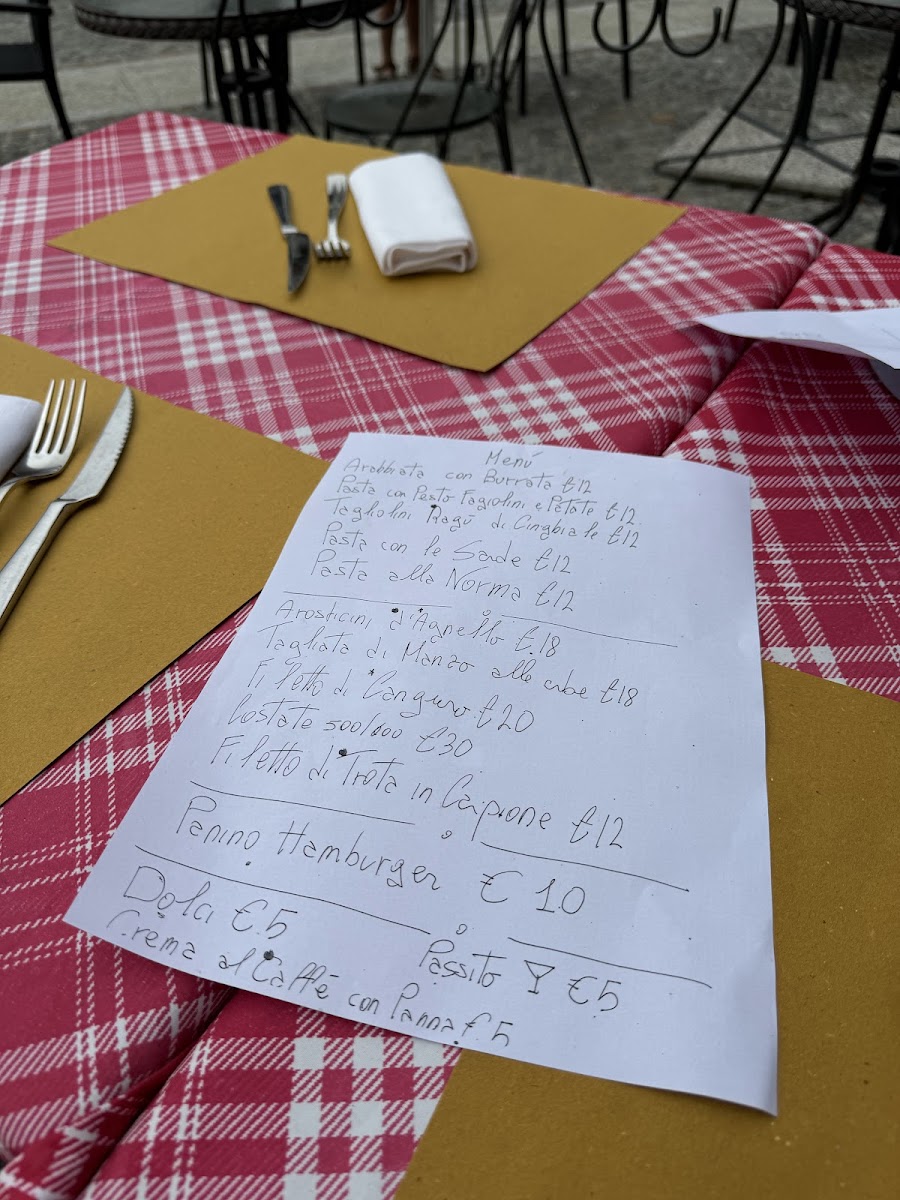 Menú
Arabbiata con Burrata €12
Pasta con Pesto Fagiolini e Patate €12
Tagliolini Ragú di Cingbiale €12
Pasta con le Sarde €12
Pasta alla Norma €12
Arosticini d'Agnello €.18
Tagliata di Manzo alle erbe €18
Filetto di Canguro €20
Costate 500/600 €30
Filetto di Trota in Carpione €12
Panino Hamburger € 10
Dolci €.5
Passito Y €5
Crema al Caffé con Panna €.5